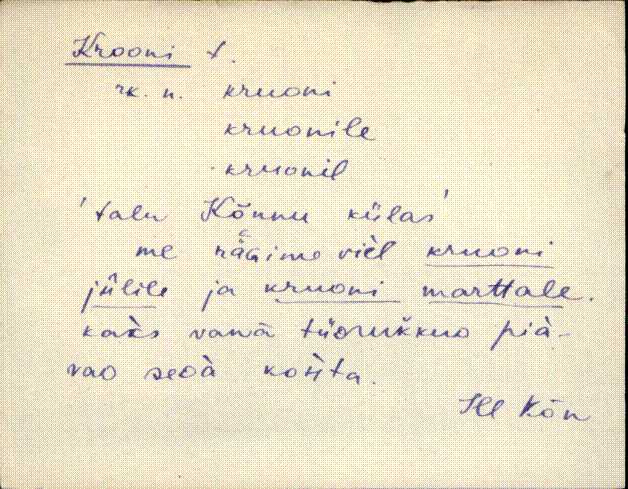 Krooni t.
rk. n. kruoni
kruonile
kruonil
'talu Kõnnu külas'
me räǵime vìel kruoni
jülile ja kruoni marttale.
kaks vanà tüorukkuo piä-
vao seòà kohta.
Hel Kõn